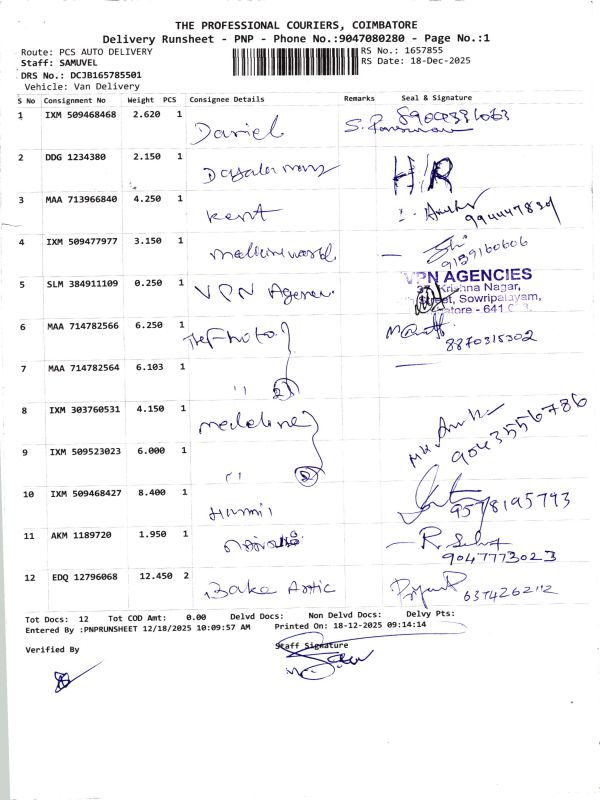 THE PROFESSIONAL COURIERS, COIMBATORE
Delivery Runsheet - PNP - Phone No.:9047080280 - Page No.:1
Route: PCS AUTO DELIVERY RS No.: 1657855
Staff: SAMUVEL RS Date: 18-Dec-2025
DRS No.: DCJB165785501
Vehicle: Van Delivery
S No Consignment No Weight PCS Consignee Details Remarks Seal & Signature
1 IXM 509468468 2.620 1 Daniel
2 DDG 1234380 2.150 1 H/R
3 MAA 713966840 4.250 1 Kent
4 IXM 509477977 3.150 1 9159160606
5 SLM 384911109 0.250 1 VPN Agencies
VPN AGENCIES
Krishna Nagar,
Street, Sowripalayam,
6 MAA 714782566 6.250 1 The Photo 8870315302
7 MAA 714782564 6.103 1 " 2
8 IXM 303760531 4.150 1 9043556786
9 IXM 509523023 6.000 1 " 2
10 IXM 509468427 8.400 1 9578195793
11 AKM 1189720 1.950 1 R. Selva
9047773023
12 EDQ 12796068 12.450 2 Bake Artic
Tot Docs: 12 Tot COD Amt: 0.00 Delvd Docs: Non Delvd Docs: Delvy Pts:
Entered By :PNPRUNSHEET 12/18/2025 10:09:57 AM Printed On: 18-12-2025 09:14:14
Verified By Staff Signature